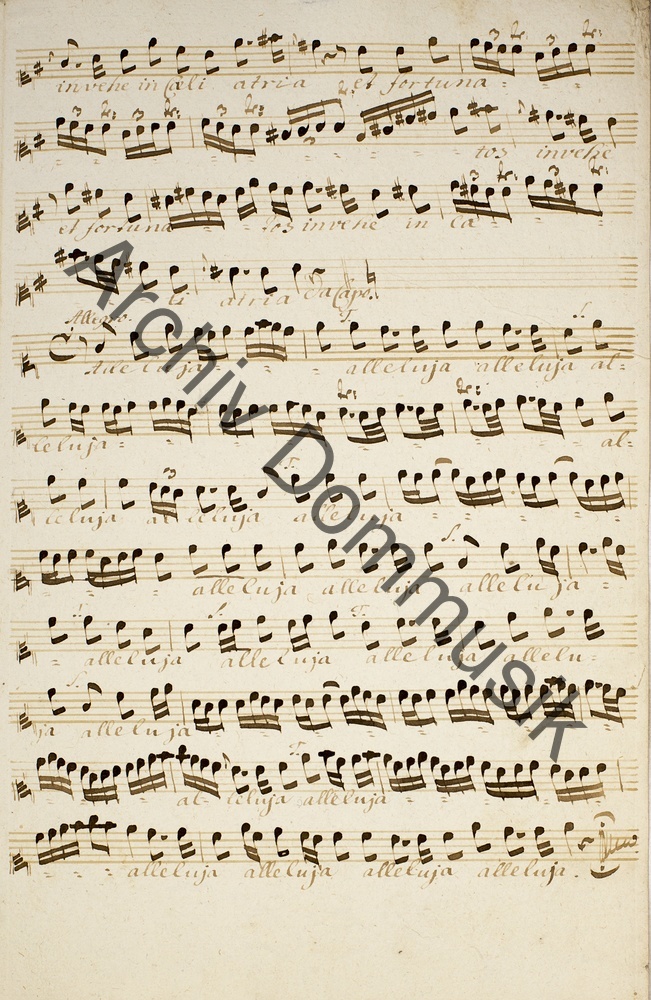 invehe in Cæli atria et fortuna -
tos invehe
et fortuna - tos invehe in Cæ -
li atria Da Capo.
Allegro. T. S.
Alleluja - alleluja alleluja al-
leluja - al-
leluja alleluja alleluja -
T.
S.
alleluja alleluja alleluja -
T. S. T.
- alleluja alleluja alleluja allelu-
S.
ja alleluja -
T.
al - leluja alleluja -
alleluja alleluja alleluja alleluja.
Archiv Dommusik